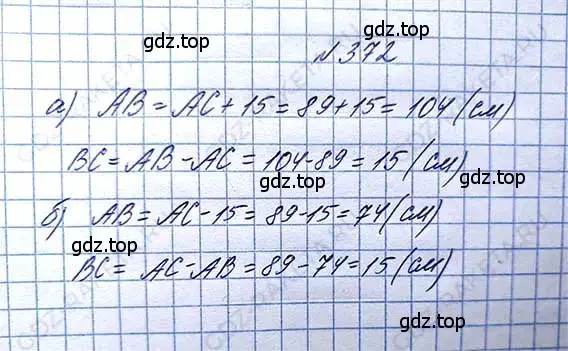 gdz.top
№372
а) AB = AC + 15 = 89 + 15 = 104 (см)
gdz.top
BC = AB - AC = 104 - 89 = 15 (см)
gdz.top
б) AB = AC - 15 = 89 - 15 = 74 (см)
gdz.top
BC = AC - AB = 89 - 74 = 15 (см)
gdz.top